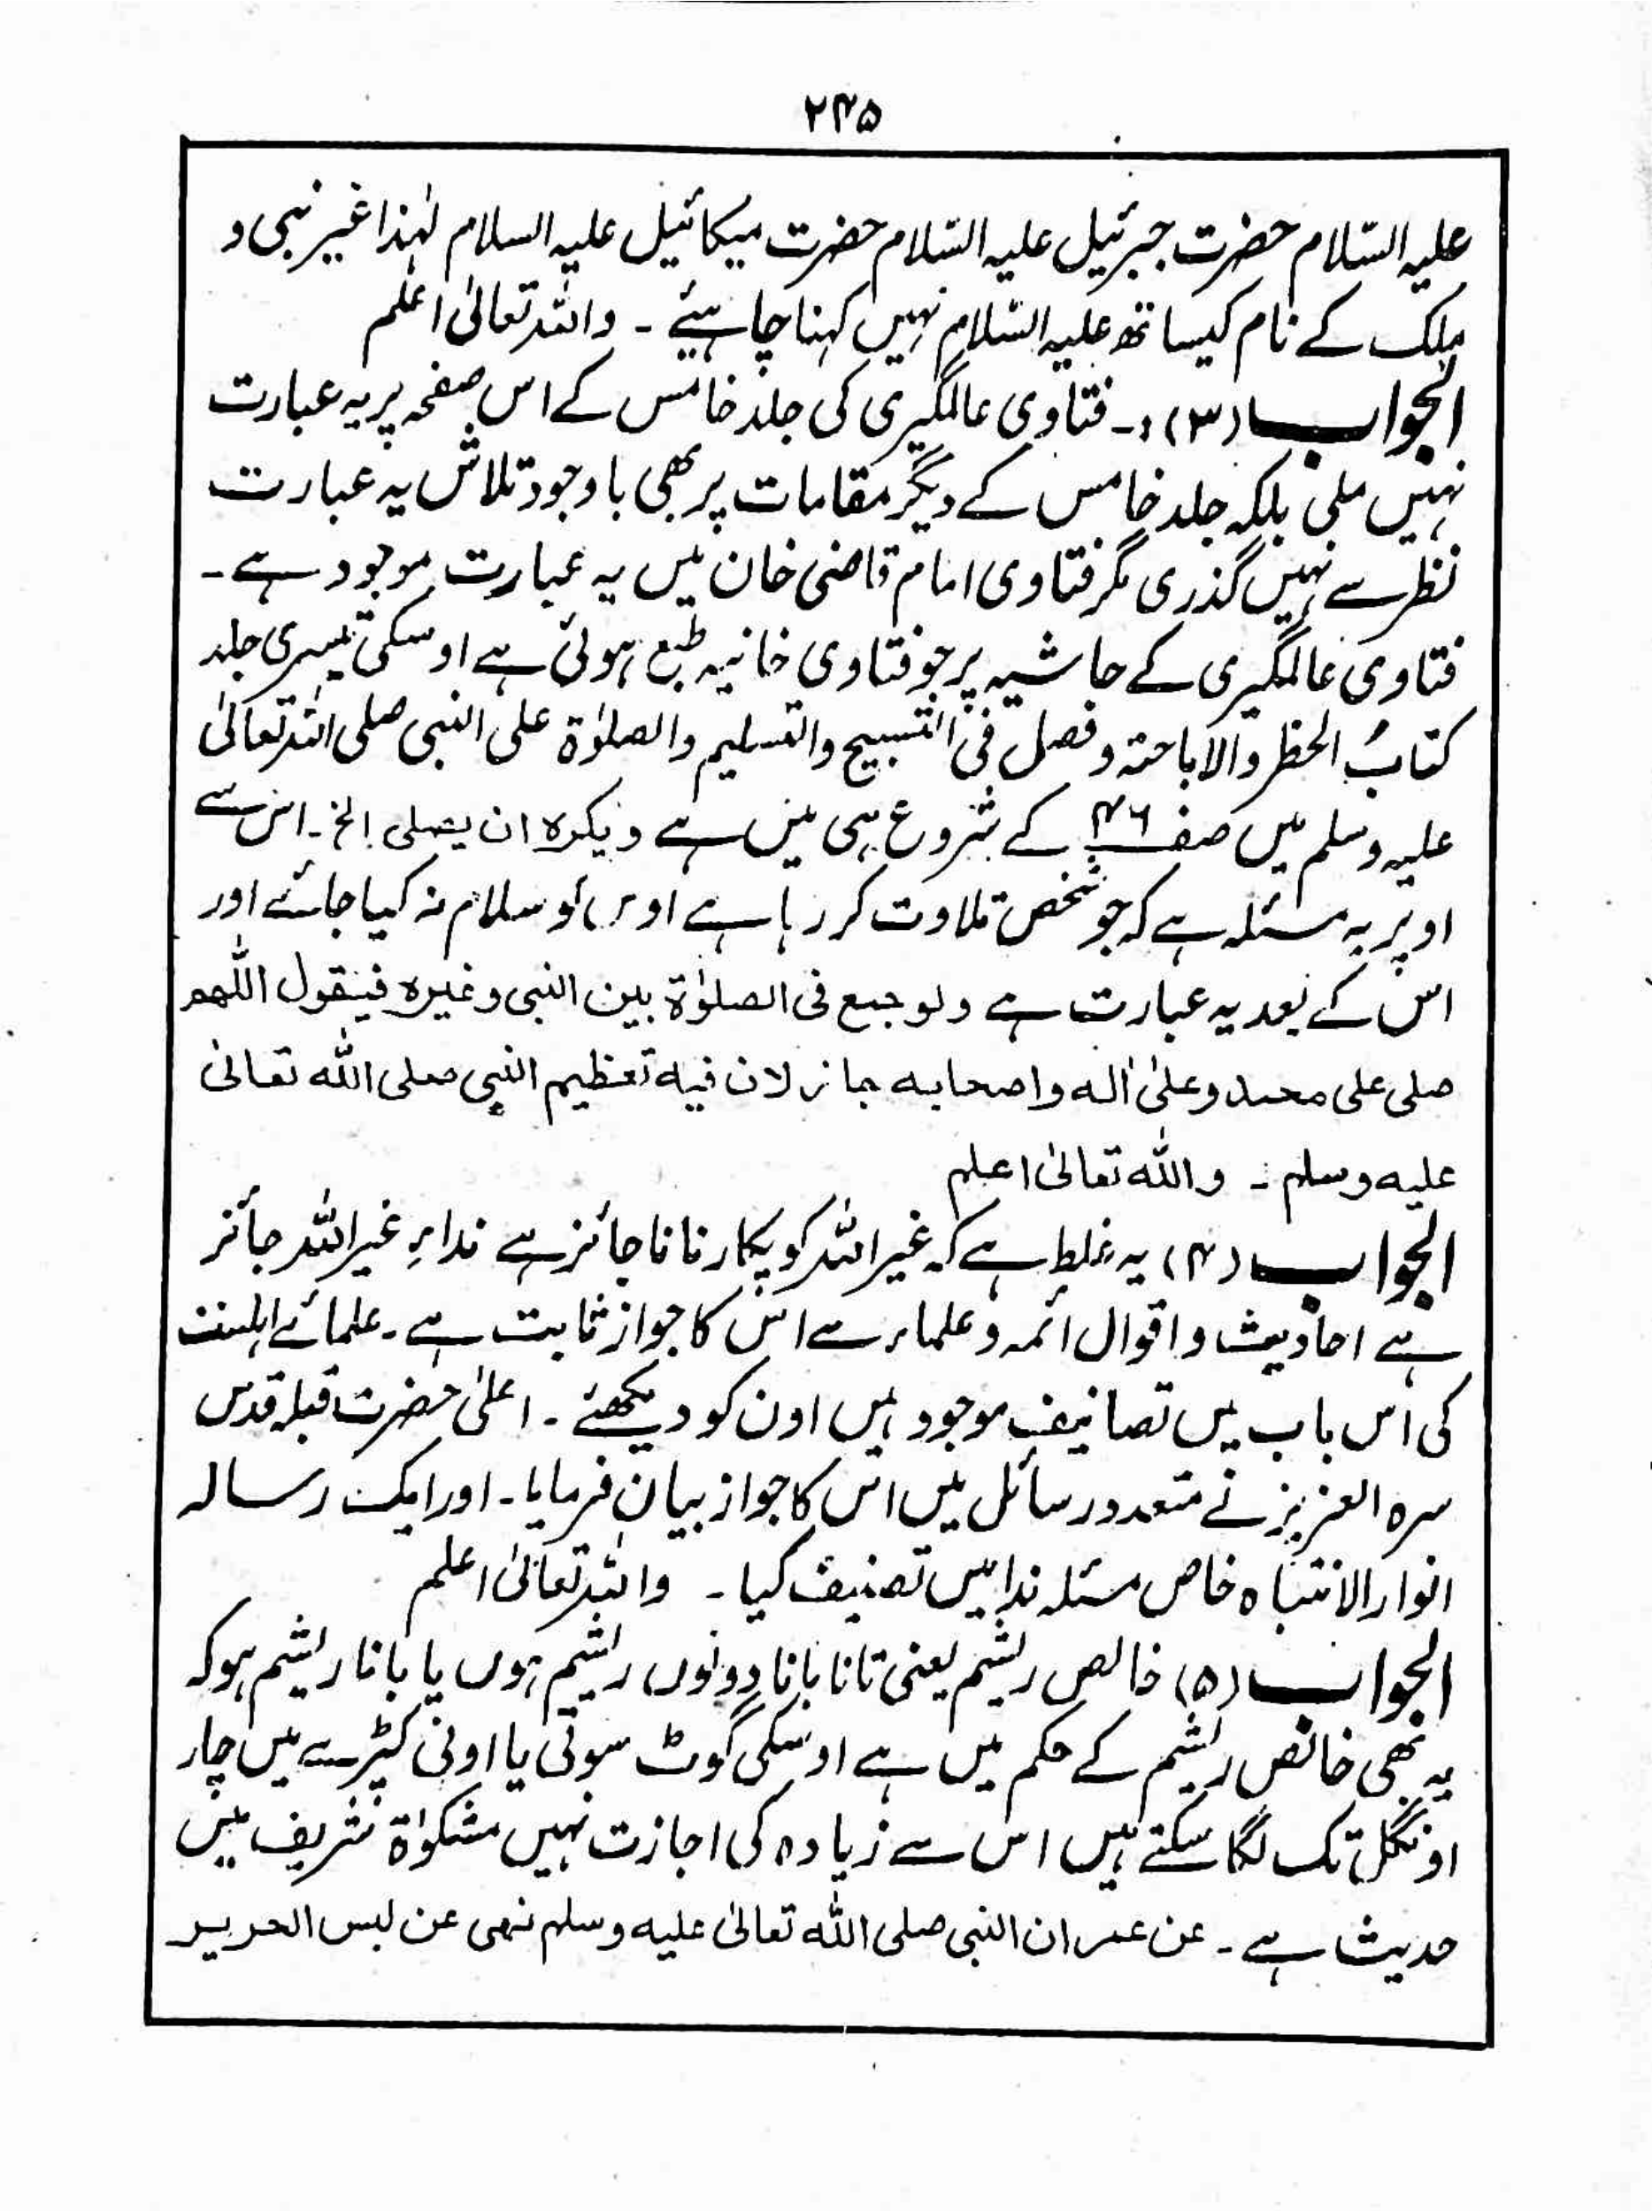 ۲۴۵
علیہ السّلام حضرت جبرئیل علیہ السّلام حضرت میکائیل علیہ السلام لہٰذا غیر نبی و
ملک کے نام کیساتھ علیہ السّلام نہیں کہنا چاہیئے ۔ واللہ تعالیٰ اعلم
الجواب (۳) :۔ فتاوی عالمگیری کی جلد خامس کے اس صفحہ پر یہ عبارت
نہیں ملی بلکہ جلد خامس کے دیگر مقامات پر بھی باوجود تلاش یہ عبارت
نظر سے نہیں گذری مگر فتاوی امام قاضی خان میں یہ عبارت موجود ہے ۔
فتاوی عالمگیری کے حاشیہ پر جو فتاوی خانیہ طبع ہوئی ہے اوسکی تیسری جلد
کتابُ الحظر والاباحتہ وفصل فی التسبیح والتسلیم والصلوٰۃ علی النبی صلی اللہ تعالیٰ
علیہ وسلم میں صفحہ ۴۶ کے شروع ہی میں ہے ویکرہ ان یصلی الخ ۔ اس سے
اوپر یہ مسئلہ ہے کہ جو شخص تلاوت کر رہا ہے اوس کو سلام نہ کیا جائے اور
اس کے بعد یہ عبارت ہے ولو جمع فی الصلوٰۃ بین النبی وغیرہ فیقول اللّٰھم
صلی علی محمد وعلیٰ اٰلہ واصحابہ جاز لان فیہ تعظیم النبی صلی اللّٰہ تعالیٰ
علیہ وسلم ۔ واللّٰہ تعالیٰ اعلم
الجواب (۴) یہ غلط ہے کہ غیر اللہ کو پکارنا ناجائز ہے نداء غیر اللہ جائز
ہے احادیث و اقوال ائمہ و علماء سے اس کا جواز ثابت ہے ۔ علمائے اہلسنت
کی اس باب میں تصانیف موجود ہیں اون کو دیکھئے ۔ اعلیٰ حضرت قبلہ قدس
سرہ العزیز نے متعدد رسائل میں اس کا جواز بیان فرمایا ۔ اور ایک رسالہ
انوار الانتباہ خاص مسئلہ ندا میں تصنیف کیا ۔ واللہ تعالیٰ اعلم
الجواب (۵) خالص ریشم یعنی تانا بانا دونوں ریشم ہوں یا بانا ریشم ہو کہ
یہ بھی خالص ریشم کے حکم میں ہے اوسکی گوٹ سوتی یا اونی کپڑے میں چار
اونگل تک لگا سکتے ہیں اس سے زیادہ کی اجازت نہیں مشکوٰۃ شریف میں
حدیث ہے ۔ عن عمر ان النبی صلی اللّٰہ تعالیٰ علیہ وسلم نھی عن لبس الحریر